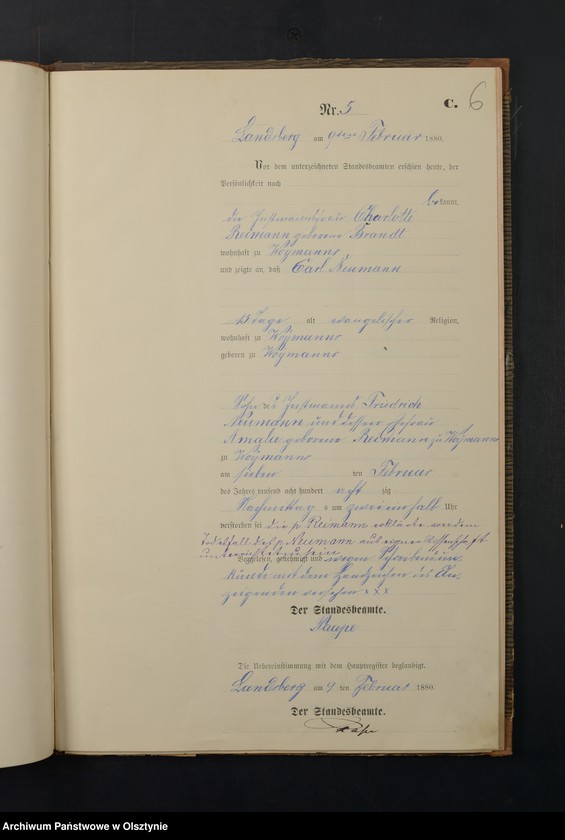 Nr. 5
C. 6
Landsberg am 9ten Februar 1880.
Vor dem unterzeichneten Standesbeamten erschien heute, der
Persönlichkeit nach
bekannt,
die Instmannsfrau Charlotte
Reimann geborene Brandt
wohnhaft zu Woymanns
und zeigte an, daß Carl Neumann
alt evangelischer Religion,
wohnhaft zu Woymanns
geboren zu Woymanns
Sohn des Instmanns Friedrich
Neumann und dessen Ehefrau
Amalie geborene Reimann zu Woymanns
zu Woymanns
am sieben ten Februar
des Jahres tausend acht hundert acht zig
Nachmittag s um zwei einhalb Uhr
verstorben sei die p. Reimann erklärte von dem
Todesfall des p. Neumann aus eigner Wissenschaft
unterrichtet zu sein
Vorgelesen, genehmigt und wegen Schreibensun-
kunde mit dem Handzeichen des An-
zeigenden versehen x x x
Der Standesbeamte.
Die Uebereinstimmung mit dem Hauptregister beglaubigt.
Landsberg am 9 ten Februar 1880.
Der Standesbeamte.
Archiwum Państwowe w Olsztynie